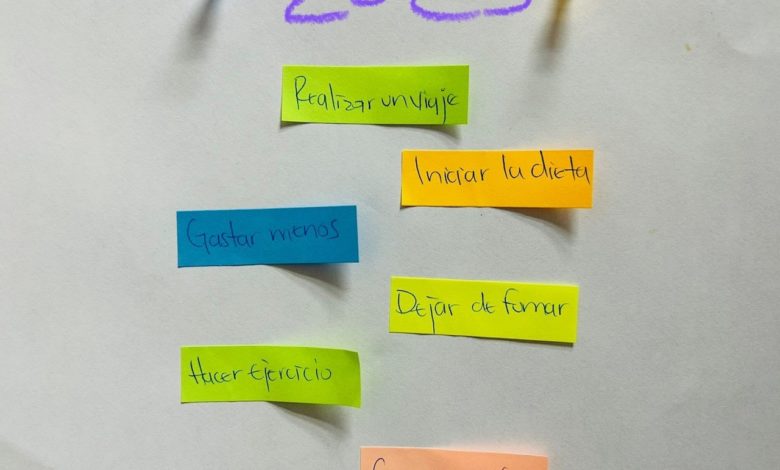 Realizar un viaje
Iniciar la dieta
Gastar menos
Dejar de fumar
Hacer Ejercicio